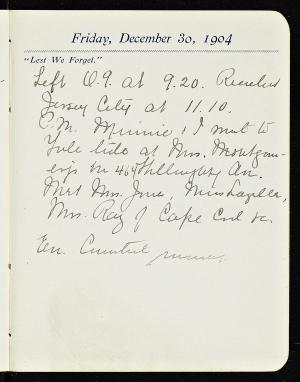 Friday, December 30, 1904
"Lest We Forget."
Left at 9.20. Reached
Jersey City at 11.10.
P.M. Minnie & I went to
Yule tide at Mrs. Montgom-
ery's on 464 Willoughby Av.
Met Mrs. Miss
Mrs. Ray of Cape Cod &c.
Ev.